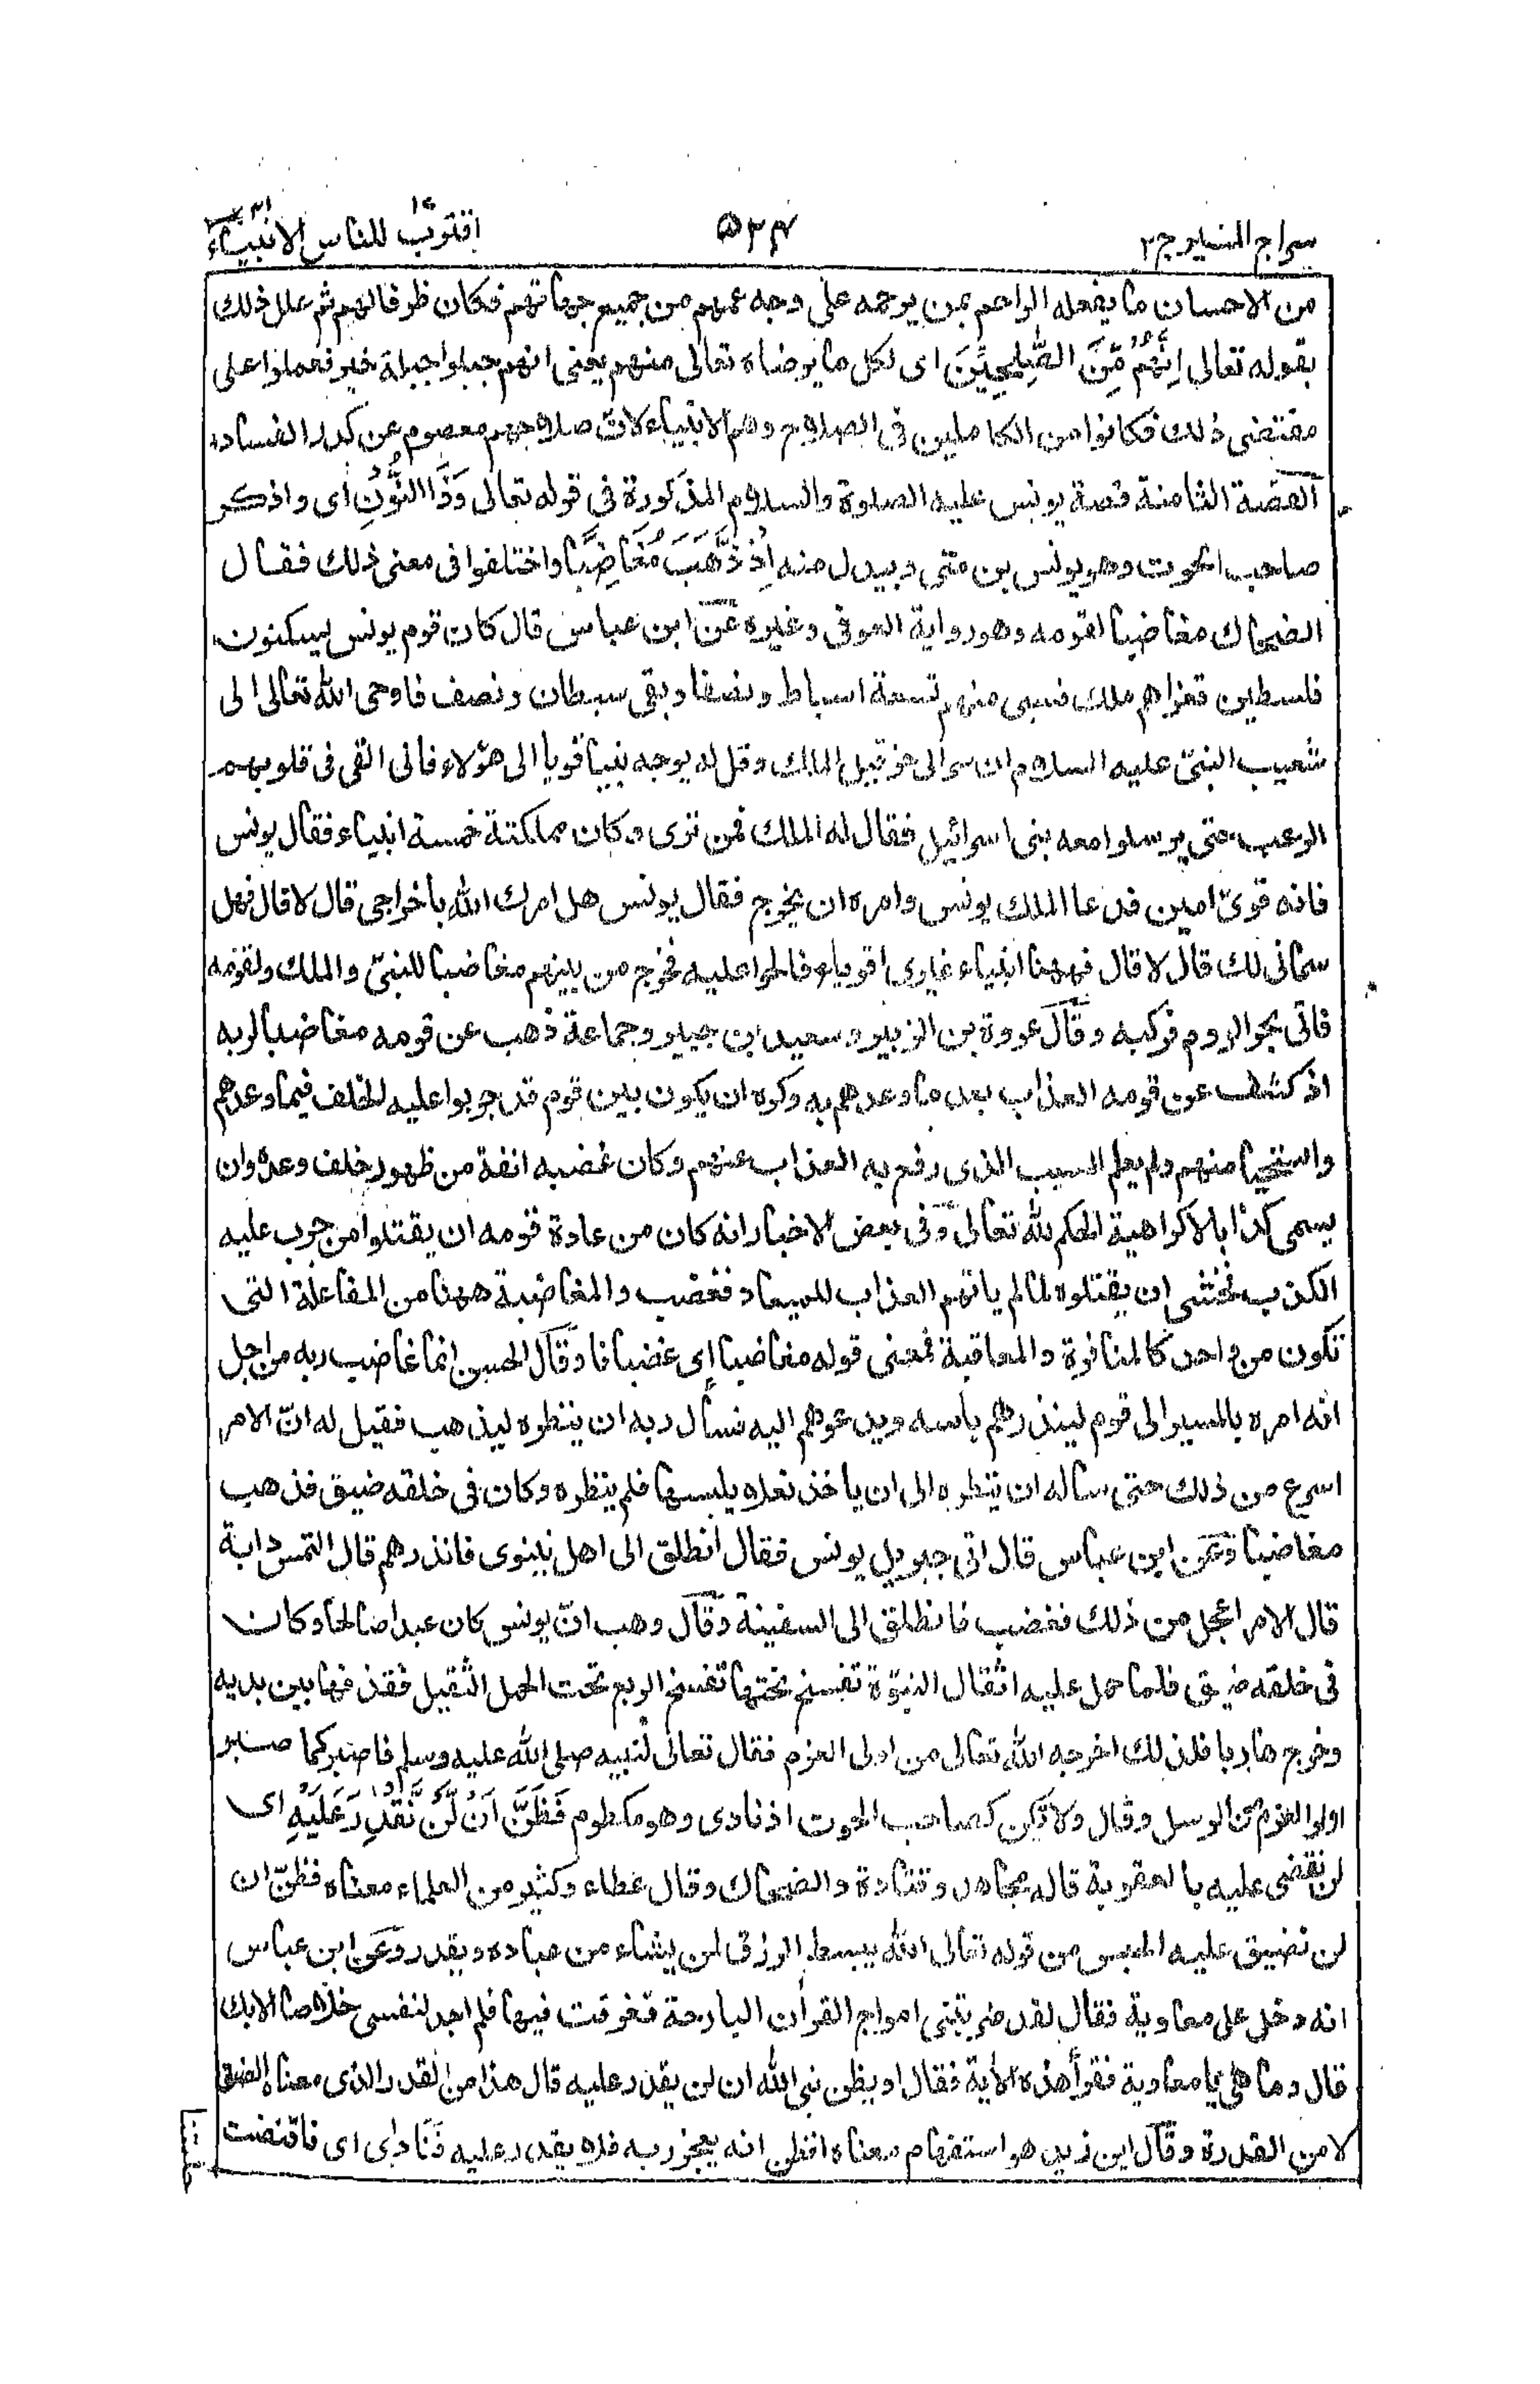 سراج المنير ج ٢
٥٣٤
اقترب للناس ١٧ الانبياء ٢١
من الاحسان ما يفعله الراحم بمن يرحمه على وجه عمهم من جميع جهاتهم فكان ظرفا لهم ثم علل ذلك
بقوله تعالى اِنَّهُمْ مِّنَ الصّٰلِحِيْنَ اى لكل ما يرضاه تعالى منهم يعنى انهم جبلوا جبلة خير فعملوا على
مقتضى ذلك فكانوا من الكاملين فى الصلاح وهم الانبياء لانّ صلاحهم معصوم عن كدر الفساد
القصّة الثامنة قصة يونس عليه الصلوة والسلام المذكورة فى قوله تعالى وَذَا النُّوْنِ اى واذكر
صاحب الحوت وهو يونس بن متى ويبدل منه اِذْ ذَّهَبَ مُغَاضِبًا واختلفوا فى معنى ذلك فقال
الضحاك مغاضبا لقومه وهو رواية العوفى وغيره عن ابن عباس قال كان قوم يونس يسكنون
فلسطين فغزاهم ملك فسبى منهم تسعة اسباط ونصفا وبقى سبطان ونصف فاوحى الله تعالى الى
شعيب النبىّ عليه السلام ان سر الى حزقيل الملك وقل له يوجه نبيا قويا الى هؤلاء فانى القى فى قلوبهم
الرعب حتى يرسلوا معه بنى اسرائيل فقال له الملك فمن ترى وكان بمملكته خمسة انبياء فقال يونس
فانه قوىّ امين فدعا الملك يونس وامره ان يخرج فقال يونس هل امرك الله باخراجى قال لا قال فهل
سمانى لك قال لا قال فههنا انبياء غيرى اقوياء فالحوا عليه فخرج من بينهم مغاضبا للنبىّ والملك ولقومه
فاتى بحر الروم فركبه وقال عروة بن الزبير وسعيد بن جبير وجماعة ذهب عن قومه مغاضبا لربه
اذ كشف عن قومه العذاب بعد ما وعدهم به وكره ان يكون بين قوم قد جربوا عليه الخلف فيما وعدهم
واستحيا منهم ولم يعلم السبب الذى رفع به العذاب عنهم وكان غضبه انفة من ظهور خلف وعده وان
يسمى كذابا لا كراهية لحكم لله تعالى وفى بعض الاخبار انه كان من عادة قومه ان يقتلوا من جرب عليه
الكذب فخشى ان يقتلوه لما لم ياتهم العذاب للميعاد فغضب والمغاضبة ههنا من المفاعلة التى
تكون من واحد كالمنافرة والمعاقبة فمعنى قوله مغاضبا اى غضبانا وقال الحسن انما غاضب ربه من اجل
انه امره بالمسير الى قوم لينذرهم بأسه ويدعوهم اليه فسأل ربه ان ينظره ليذهب فقيل له انّ الامر
اسرع من ذلك حتى ساله ان ينظره الى ان ياخذ نعلا يلبسها فلم ينظره وكان فى خلقه ضيق فذهب
مغاضبا وعن ابن عباس قال اتى جبريل يونس فقال انطلق الى اهل نينوى فانذرهم قال التمس دابة
قال الامر اعجل من ذلك فغضب فانطلق الى السفينة وقال وهب انّ يونس كان عبدا صالحا وكان
فى خلقه ضيق فلما حمل عليه اثقال النبوّة تفسخ تحتها تفسخ الربع تحت الحمل الثقيل فقذفها بين يديه
وخرج هاربا فلذلك اخرجه الله تعالى من اولى العزم فقال تعالى لنبيه صلى الله عليه وسلم فاصبر كما صبر
اولوا العزم من الرسل وقال ولا تكن كصاحب الحوت اذ نادى وهو مكظوم فَظَنَّ اَنْ لَّنْ نَّقْدِرَ عَلَيْهِ اى
لن نقضى عليه بالعقوبة قاله مجاهد وقتادة والضحاك وقال عطاء وكثير من العلماء معناه فظنّ ان
لن نضيق عليه الحبس من قوله تعالى الله يبسط الرزق لمن يشاء من عباده ويقدر وعن ابن عباس
انه دخل على معاوية فقال لقد ضربتنى امواج القرأن البارحة فغرقت فيها فلم اجد لنفسى خلاصا الا بك
قال وما هى يا معاوية فقرأ هذه الاٰية فقال او يظن نبى الله ان لن يقدر عليه قال هذا من القدر الذى معناه الضيق
لا من القدرة وقال ابن زيد هو استفهام معناه افظن انه يعجز ربه فلا يقدر عليه فَنَادٰى اى فاقتضت